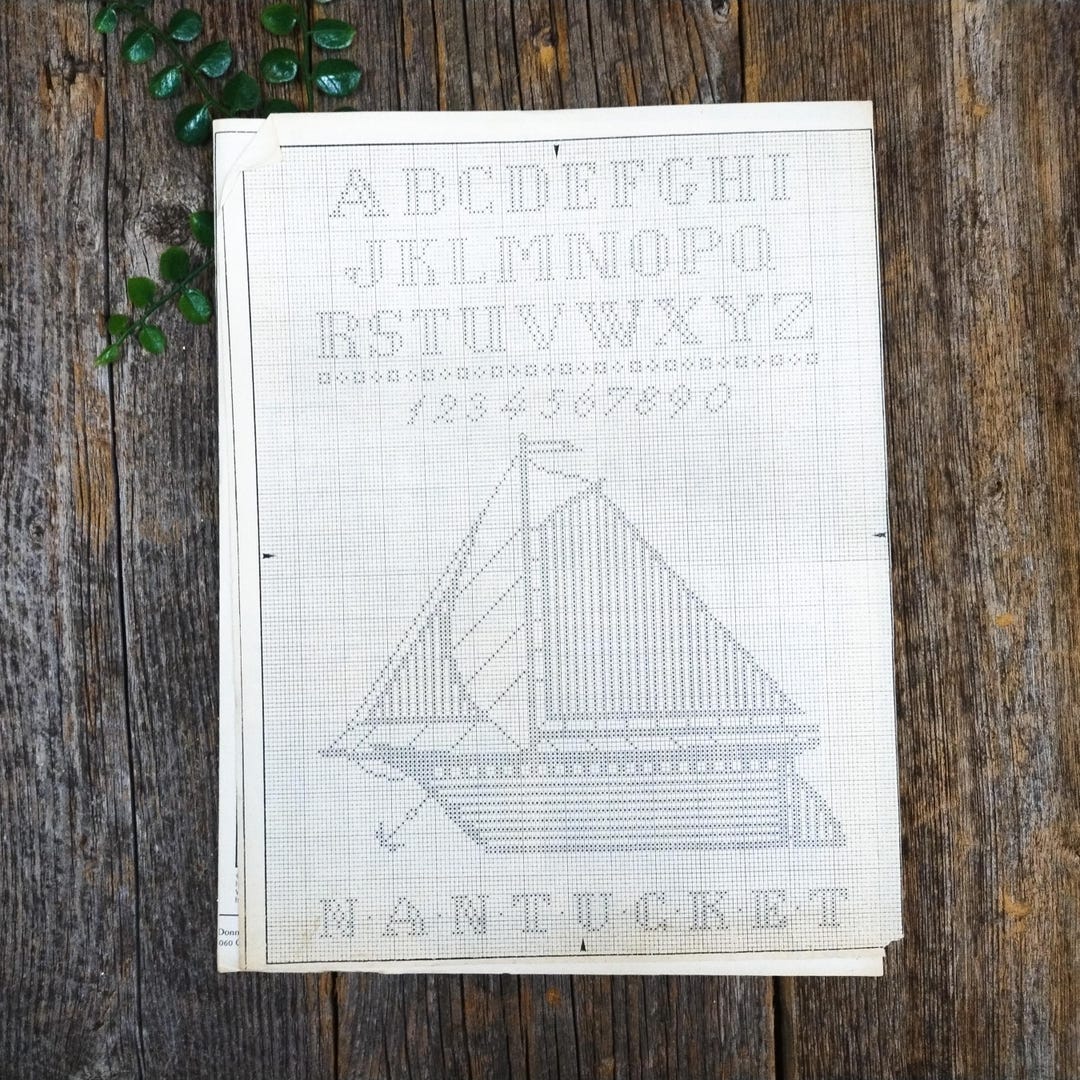 ABCDEFGHI
JKLMNOPQ
RSTUVWXYZ
1234567890
N·A·N·T·U·C·K·E·T
Donn
060